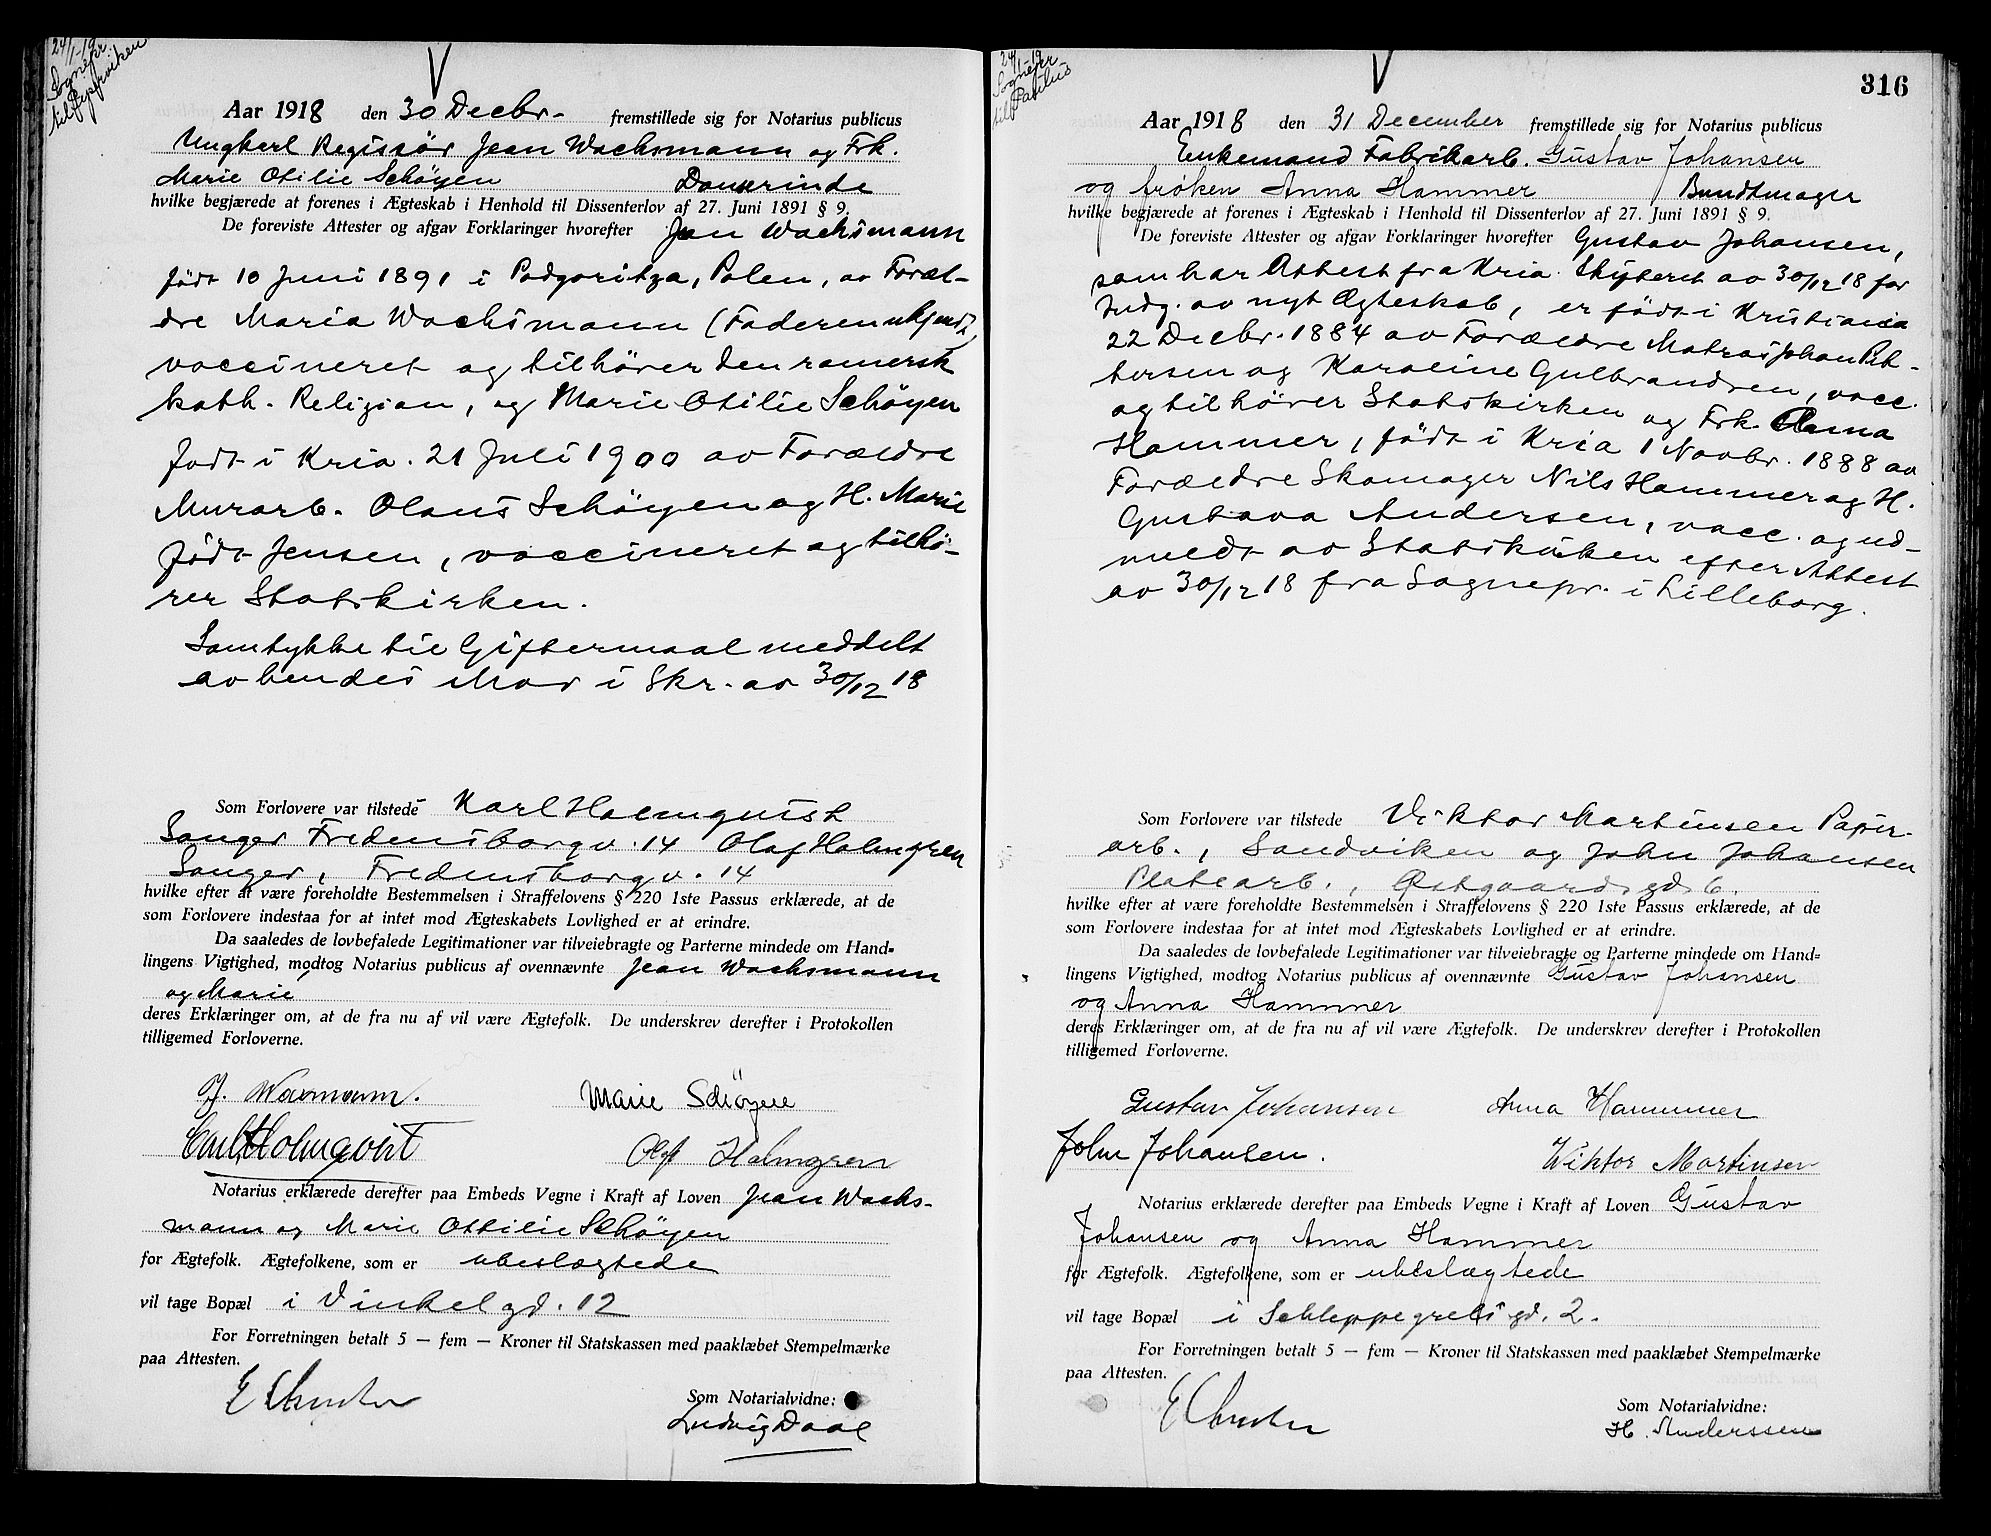 24/1-19
Sognepr.
til Piperviken
Aar 1918 den 30 Decbr. fremstillede sig for Notarius publicus
Ungkarl Regissör Jean Wachsmann og Frk.
Marie Otilie Schöyen Danserinde
hvilke begjærede at forenes i Ægteskab i Henhold til Dissenterlov af 27. Juni 1891 § 9.
De foreviste Attester og afgav Forklaringer hvorefter Jean Wachsmann
födt 10 Juni 1891 i Podgoritza, Polen, av Foræl-
dre Maria Wachsmann (Faderen ukjendt)
vaccineret og tilhörer den romersk
kath. Religion, og Marie Otilie Schöyen
födt i Kria. 21 Juli 1900 av Forældre
Murarb. Olaus Schöyen og H. Marie
födt Jensen, vaccineret og tilhö-
rer Statskirken.
Samtykke til Giftermaal meddelt
av hendes Mor i Skr. av 30/12 18
Som Forlovere var tilstede Karl Holmquist
Sanger Fredensborgv. 14 Olaf Holmgren
Sanger, Fredensborgv. 14
hvilke efter at være foreholdte Bestemmelsen i Straffelovens § 220 1ste Passus erklærede, at de
som Forlovere indestaa for at intet mod Ægteskabets Lovlighed er at erindre.
Da saaledes de lovbefalede Legitimationer var tilveiebragte og Parterne mindede om Hand-
lingens Vigtighed, modtog Notarius publicus af ovennævnte Jean Wachsmann
og Marie
deres Erklæringer om, at de fra nu af vil være Ægtefolk. De underskrev derefter i Protokollen
tilligemed Forloverne.
J. Waxmann. Marie Schöyen
Carl Holmqvist Olof Holmgren
Notarius erklærede derefter paa Embeds Vegne i Kraft af Loven Jean Wachs-
mann og Marie Ottilie Schöyen
for Ægtefolk. Ægtefolkene, som er ubeslægtede
vil tage Bopæl i Vinkelgd. 12
For Forretningen betalt 5 — fem — Kroner til Statskassen med paaklæbet Stempelmærke
paa Attesten.
Som Notarialvidne:
Ludvig Daae
316
24/1-19
Sognepr
til Paulus
Aar 1918 den 31 December fremstillede sig for Notarius publicus
Enkemand Fabrikarb. Gustav Johansen
og fröken Anna Hammer Bundtmager
hvilke begjærede at forenes i Ægteskab i Henhold til Dissenterlov af 27. Juni 1891 § 9.
De foreviste Attester og afgav Forklaringer hvorefter Gustav Johansen,
som har Attest fra Kria. Skifteret av 30/12 18 for
Indg. av nyt Ægteskab, er födt i Kristiania
22 Decbr. 1884 av Forældre Matros Johan Pet-
tersen og Karoline Gulbrandsen, vacc.
og tilhörer Statskirken og Frk. Anna
Hammer, födt i Kria 1 Novbr. 1888 av
Forældre Skomager Nils Hammer og H.
Gustava Andersen, vacc. og ud-
meldt av Statskirken efter Attest
av 30/12 18 fra Sognepr. i Lilleborg.
Som Forlovere var tilstede Viktor Martinsen Papir-
arb., Sandviken og John Johansen
Platearb., Østgaardsgd. 6.
hvilke efter at være foreholdte Bestemmelsen i Straffelovens § 220 1ste Passus erklærede, at de
som Forlovere indestaa for at intet mod Ægteskabets Lovlighed er at erindre.
Da saaledes de lovbefalede Legitimationer var tilveiebragte og Parterne mindede om Hand-
lingens Vigtighed, modtog Notarius publicus af ovennævnte Gustav Johansen
og Anna Hammer
deres Erklæringer om, at de fra nu af vil være Ægtefolk. De underskrev derefter i Protokollen
tilligemed Forloverne.
Gustav Johansen Anna Hammer
John Johansen. Wiktor Martinsen
Notarius erklærede derefter paa Embeds Vegne i Kraft af Loven Gustav
Johansen og Anna Hammer
for Ægtefolk. Ægtefolkene, som er ubeslægtede
vil tage Bopæl i Schleppegrelsgd. 2.
For Forretningen betalt 5 — fem — Kroner til Statskassen med paaklæbet Stempelmærke
paa Attesten.
Som Notarialvidne:
H. Anderssen